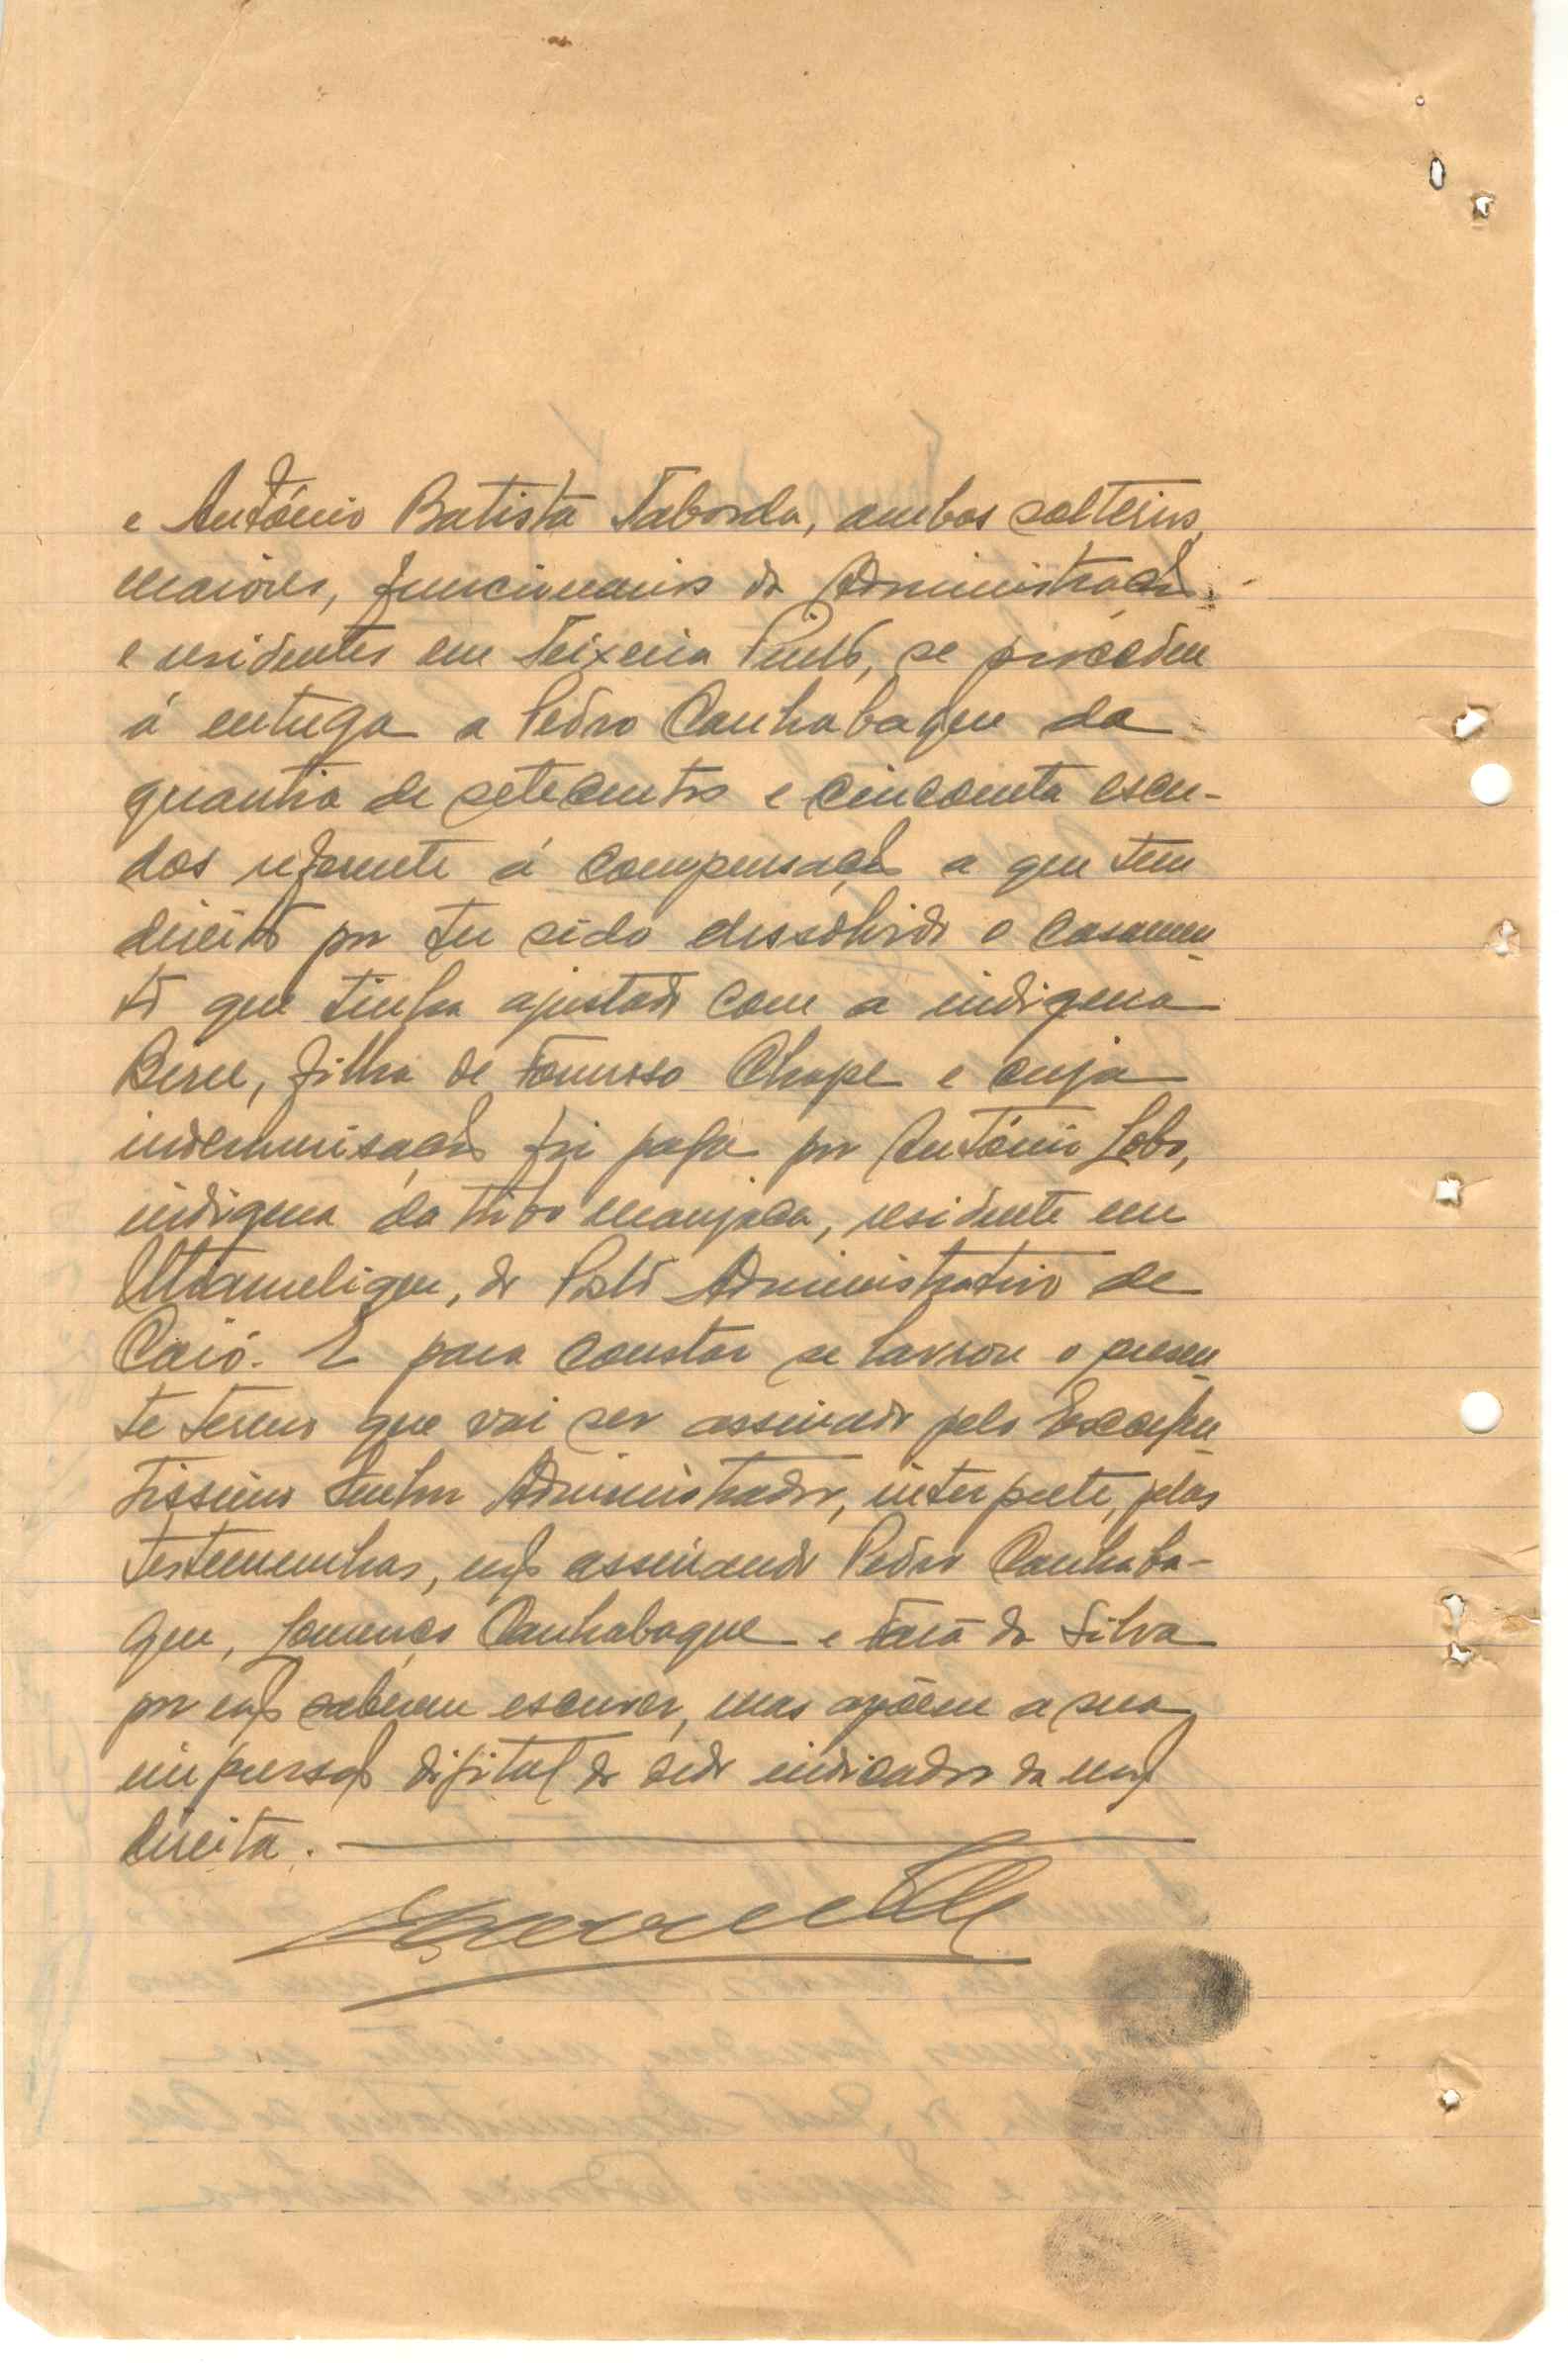 e António Batista Taborda, ambos solteiros,
maiores, funcionarios da Administração
e residentes em Teixeira Pinto, se procedeu
á entrega a Pedro Canhabaque da
quantia de setecentos e cincoenta escu-
dos referente á compensação a que tem
direito por ter sido dissolvido o casamen-
to que tinha ajustado com a indigena
filha de Chape e cuja
indemnisação foi paga por António Lobo,
indigena da tribo manjaca, residente em
do Posto Administrativo de
Caió. E para constar se lavrou o presen-
te termo que vai ser assinado pelo Excelen-
tissimo Senhor Administrador, interprete, pelas
testemunhas, não assinando Pedro Canhaba-
que, Lourenço Canhabaque e da Silva
por não saberem escrever, mas apõem a sua
impressão digital do dedo indicador da mão
direita.